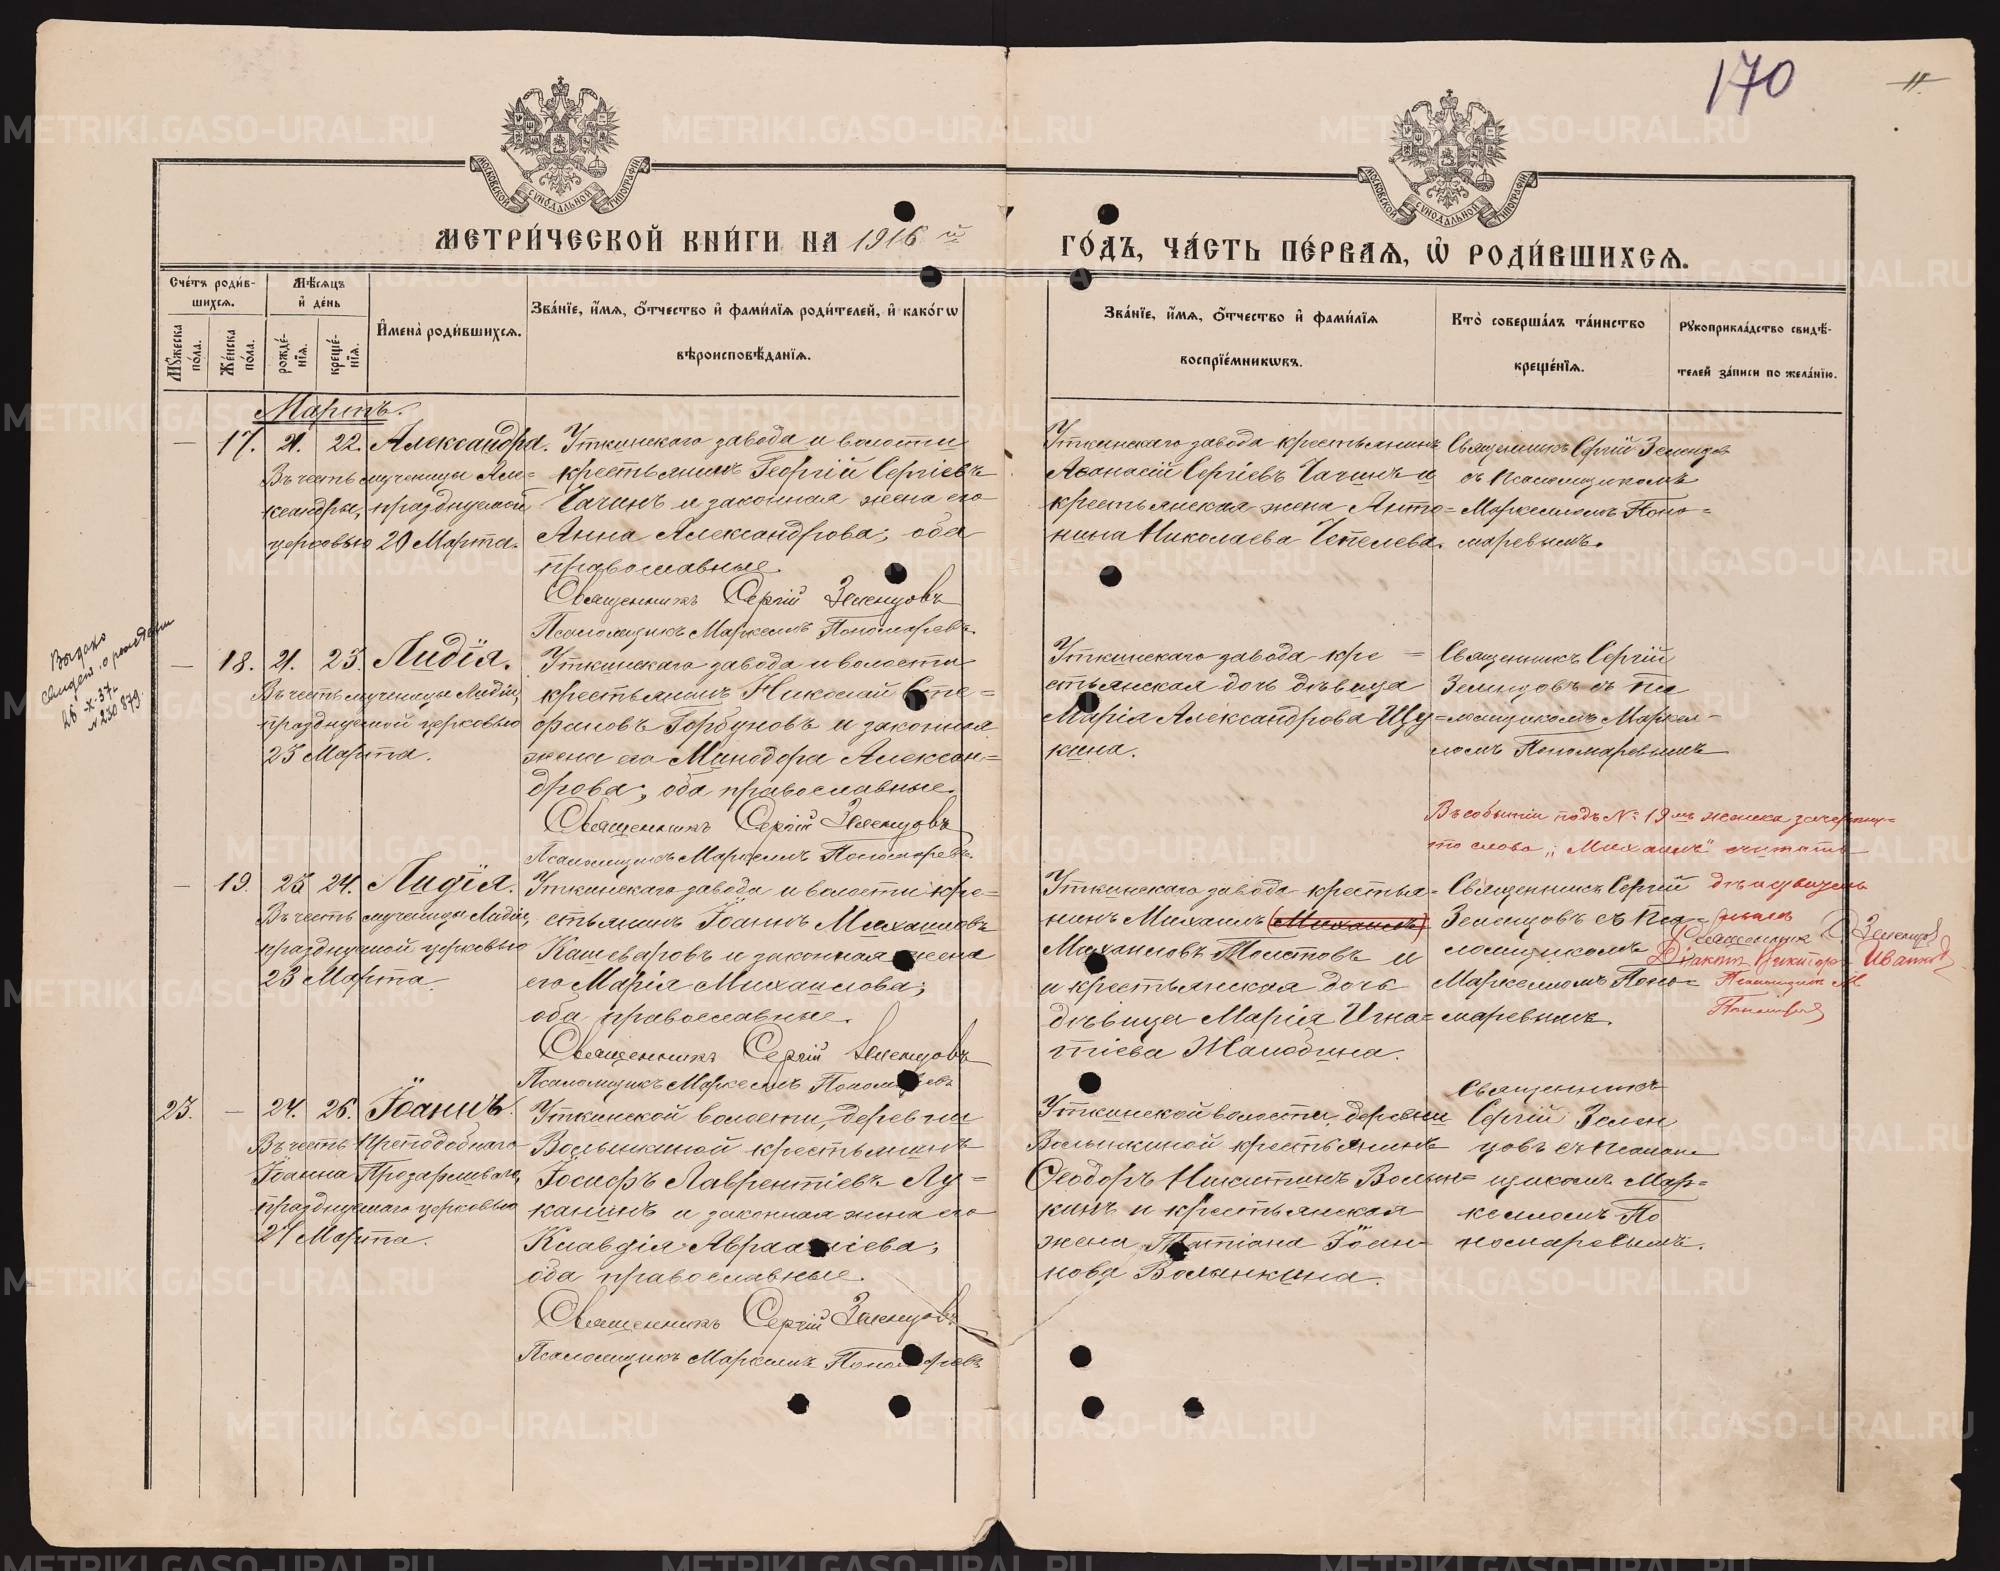 170
11
МОСКОВСКОЙ СѴНОДАЛЬНОЙ ТИПОГРАФІИ
МОСКОВСКОЙ СѴНОДАЛЬНОЙ ТИПОГРАФІИ
МЕТРИ́ЧЕСКОЙ КНИ́ГИ НА 1916 й
ГО́ДЪ, ЧА́СТЬ ПЕ́РВАЯ, Ѡ҆ РОДИ́ВШИХСЯ.
Сче́тъ роди́в-
шихся.
Мꙋ́жеска по́ла.
Же́нска по́ла.
Мѣ́сяцъ
и҆ де́нь
рожде́-
нїя.
креще́-
нїя.
И҆мена̀ роди́вшихся.
Зва́нїе, и҆́мя, ѻ҆́тчество и҆ фами́лїя роди́телей, и҆ како́гѡ
вѣроисповѣ́данїя.
Зва́нїе, и҆́мя, ѻ҆́тчество и҆ фами́лїя
воспрїе́мникѡвъ.
Кто̀ соверша́лъ та́инство
креще́нїя.
Рꙋкоприкла́дство свидѣ́-
телей за́писи по жела́нїю.
Мартъ.
— 17. 21. 22. Александра.
Въ честь мученицы Але-
ксандры, празднуемой
церковью 20 Марта.
Уткинскаго завода и волости
крестьянинъ Георгій Сергіевъ
Чачинъ и законная жена его
Анна Александрова; оба
православные.
Священникъ Сергій Зеленцовъ
Псаломщикъ Маркеллъ Пономаревъ
Уткинскаго завода крестьянинъ
Аѳанасій Сергіевъ Чачинъ и
крестьянская жена Анто=
нина Николаева Чепелева.
Священникъ Сергій Зеленцов
съ псаломщикомъ
Маркелломъ Поно=
маревымъ.
Выдано
свидет. о рождении
26-X-37
№ 230879.
— 18. 21. 23. Лидія.
Въ честь мученицы Лидіи,
празднуемой церковью
23 Марта.
Уткинскаго завода и волости
крестьянинъ Николай Сте=
фановъ Горбуновъ и законная
жена его Минодора Алексан=
дрова; оба православные.
Священникъ Сергій Зеленцовъ
Псаломщикъ Маркеллъ Пономаревъ
Уткинскаго завода кре=
стьянская дочь дѣвица
Марія Александрова Щу=
кина.
Священникъ Сергій
Зеленцовъ съ пса
ломщикомъ Маркел-
ломъ Пономаревымъ
Въ событіи подъ № 19 мъ женска зачеркну=
то слово „Михаилъ" считать
— 19. 23. 24. Лидія.
Въ честь мученицы Лидіи,
празднуемой церковью
23 Марта.
Уткинскаго завода и волости кре=
стьянинъ Іоаннъ Михаиловъ
Кашеваровъ и законная жена
его Марія Михаилова;
оба православные.
Священникъ Сергій Зеленцовъ
Псаломщикъ Маркеллъ Пономаревъ
Уткинскаго завода крестья=
нинъ Михаилъ (Михаилъ)
Михаиловъ Толстовъ и
и крестьянская дочь
дѣвица Марія Игна=
тіева Жалобина.
Священникъ Сергій
Зеленцовъ съ пса=
ломщикомъ
Маркелломъ Поно=
маревымъ.
Священникъ С. Зеленцов
Діаконъ
Псаломщикъ М
Пономарев
23. — 24. 26. Іоаннъ.
Въ честь Преподобнаго
Іоанна Прозорливаго,
празднуемаго церковью
27 Марта.
Уткинской волости, деревни
Волынкиной крестьянинъ
Іосифъ Лаврентіевъ Лу=
канинъ и законная жена его
Клавдія Аврааміева;
оба православные.
Священникъ Сергій Зеленцовъ
Псаломщикъ Маркеллъ Пономаревъ
Уткинской волости, деревни
Волынкиной крестьянинъ
Ѳеодоръ Никитинъ Волын=
кинъ и крестьянская
жена Татіана Іоан-
нова Волынкина.
Священникъ
Сергій Зелен
цовъ съ псалом
щикомъ Мар=
келломъ По
номаревымъ.